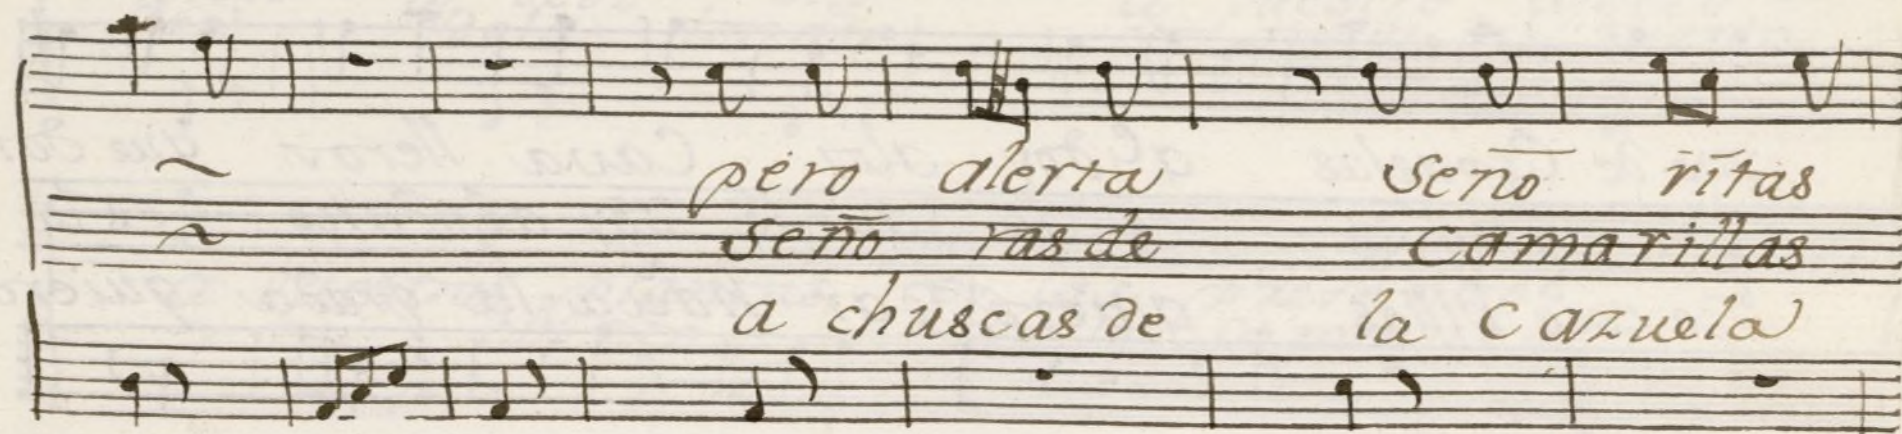 pero alerta seño ritas
seño ras de camarillas
a chuscas de la cazuela